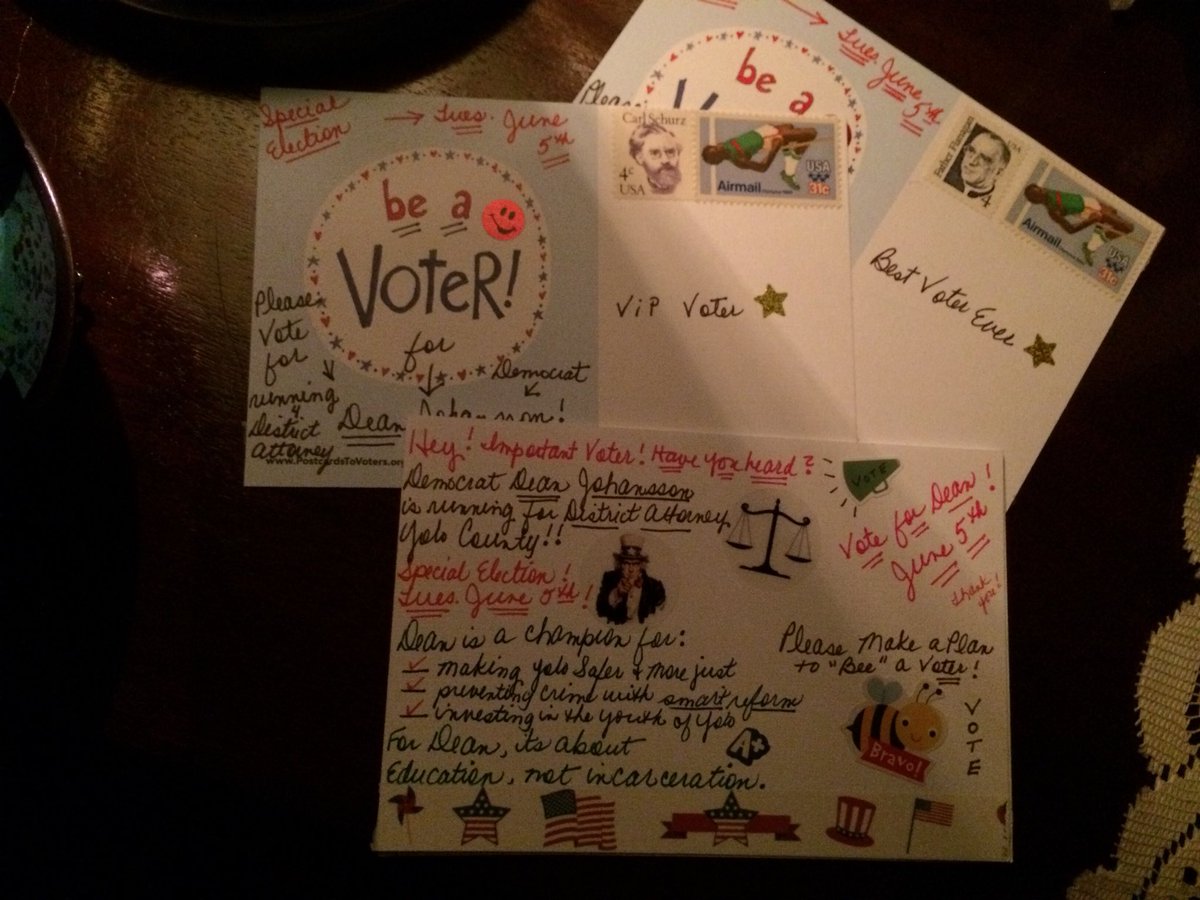 Special
Election
→ Tues. June
5th
be a
VoteR!
for
Please
Vote
for
running
4
District
Attorney
Democrat
Dean
www.PostcardsToVoters.org
Carl Schurz
4c
USA
USA
31c
Airmail
ViP Voter
Tues. June
5th
be a
Please
Father Flanagan
USA
4
USA
31c
Airmail
Best Voter Ever
Hey! Important Voter! Have you heard?
Democrat Dean Johansson
is running for District Attorney
Yolo County!!
Special Election!
Tues. June 5th!
VOTE
Vote for Dean!
June 5th
Thank
you!
Dean is a champion for:
making Yolo Safer & more just
preventing crime with smart reform
investing in the youth of Yolo
For Dean, its about
Education, not incarceration.
A+
Please Make a Plan
to "Bee" a Voter!
Bravo!
VOTE